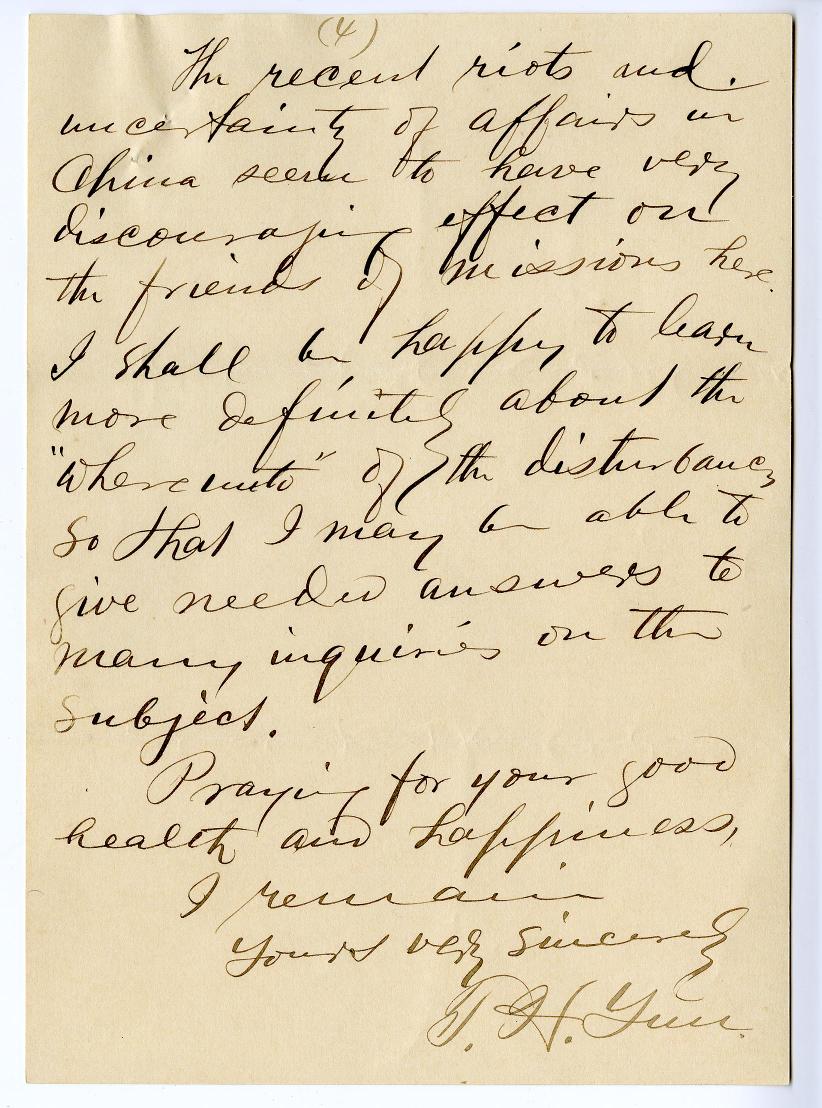 (4)
The recent riots and
uncertainty of affairs in
China seem to have very
discouraging effect on
the friends of missions here.
I shall be happy to learn
more definitely about the
"whereunto" of the disturbances
so that I may be able to
give needed answers to
many inquiries on the
subject.
Praying for your good
health and happiness,
I remain
Yours very sincerely
T. H. Yun.